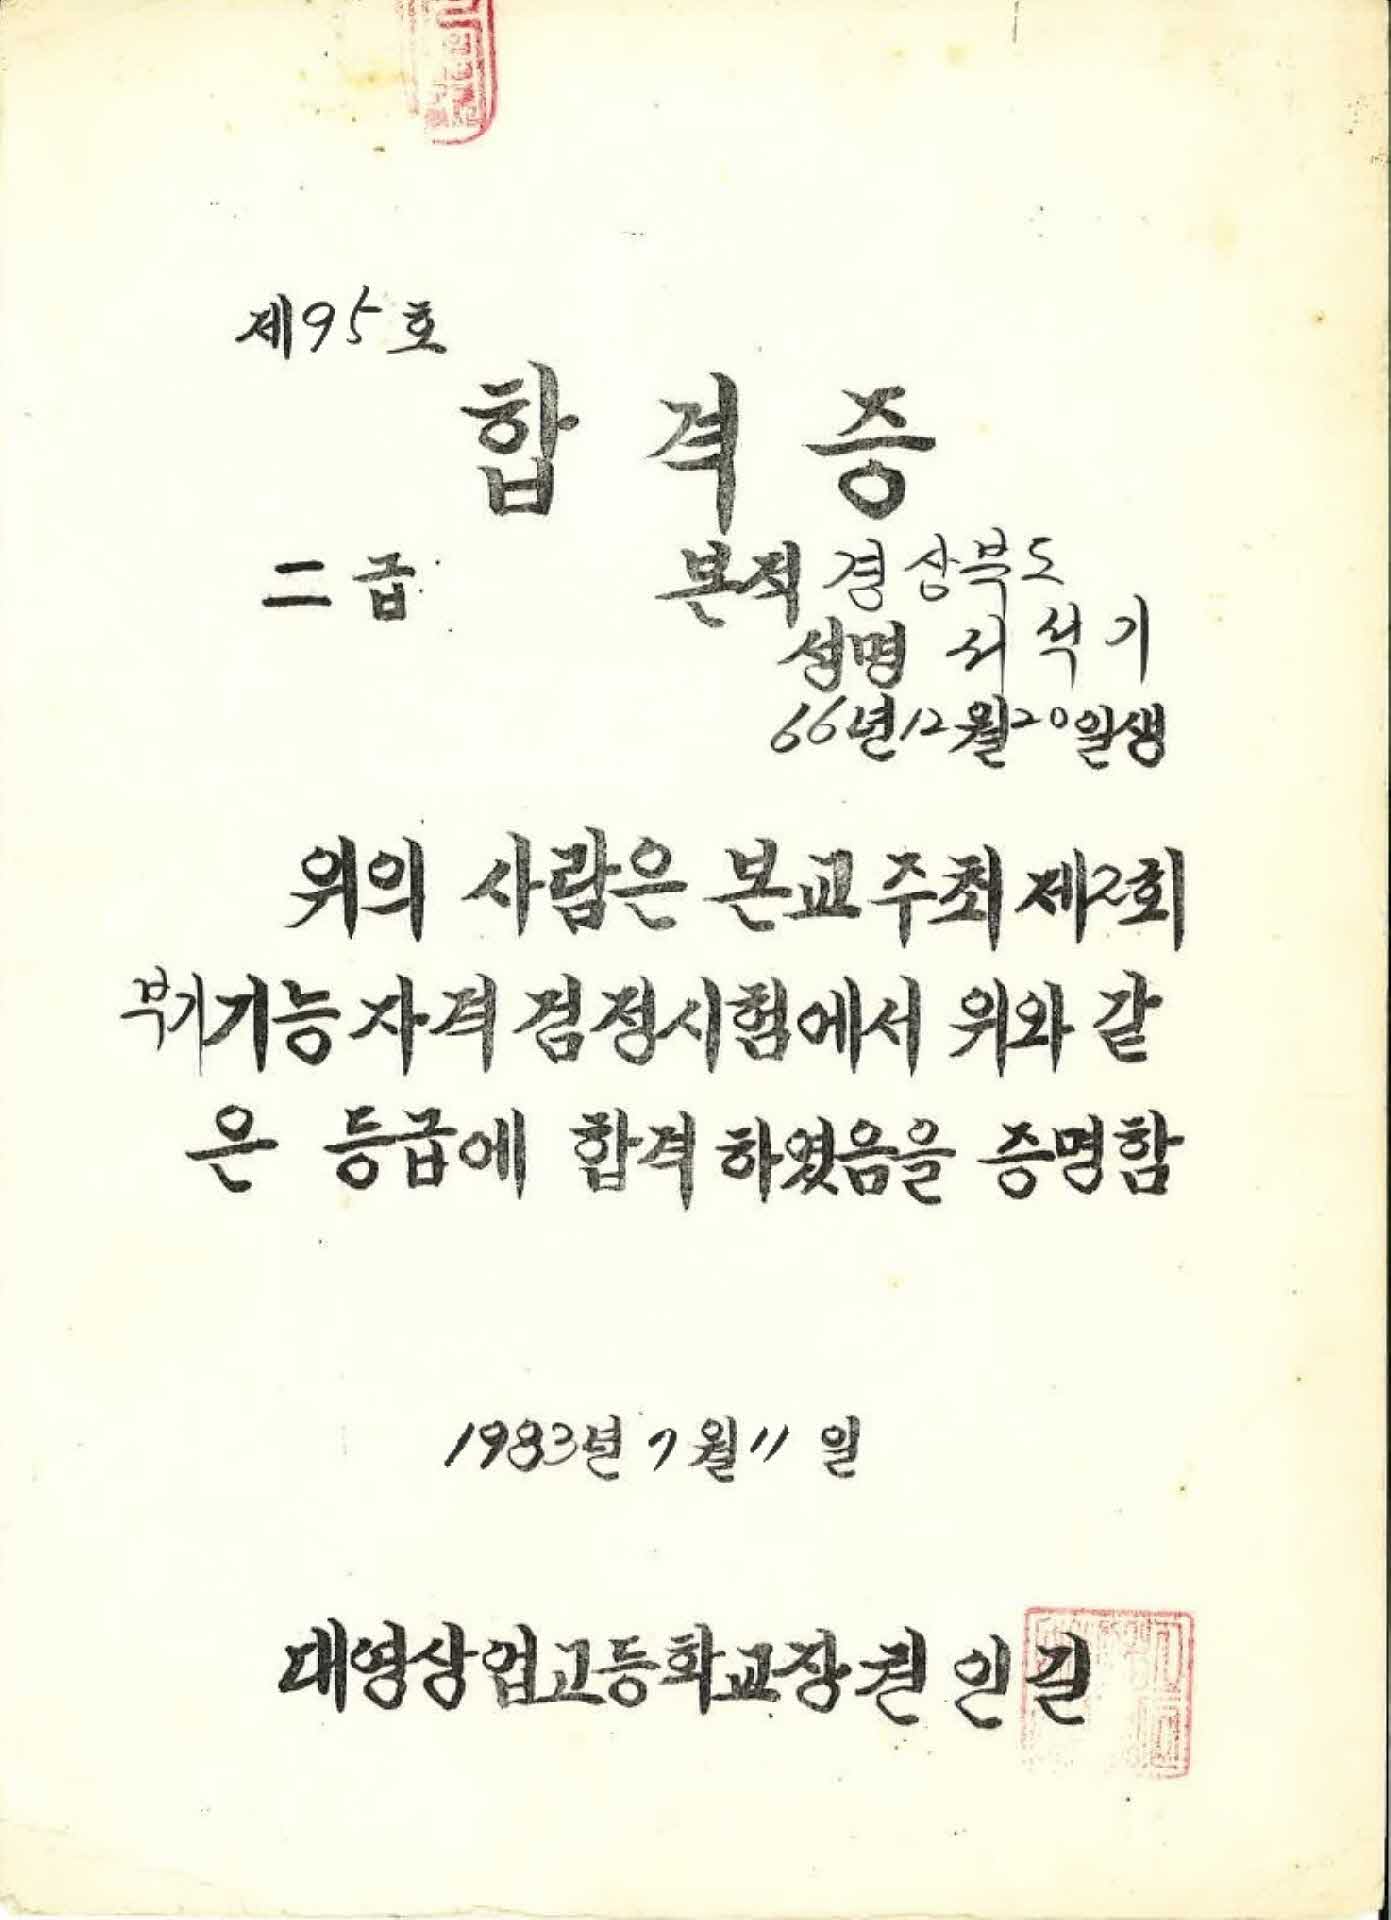 제95호
합격증
二급 본적 경상북도
성명 서석기
66년12월20일생
위의 사람은 본교주최 제2회
부기기능자격검정시험에서 위와 같
은 등급에 합격하였음을 증명함
1983년 7월 11일
대영상업고등학교장 권인길